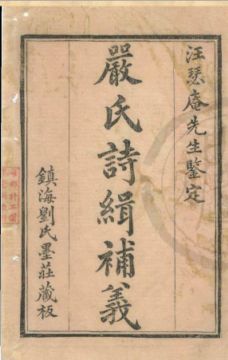 汪瑟庵先生鑒定
嚴氏詩緝補義
鎮海劉氏墨莊藏板